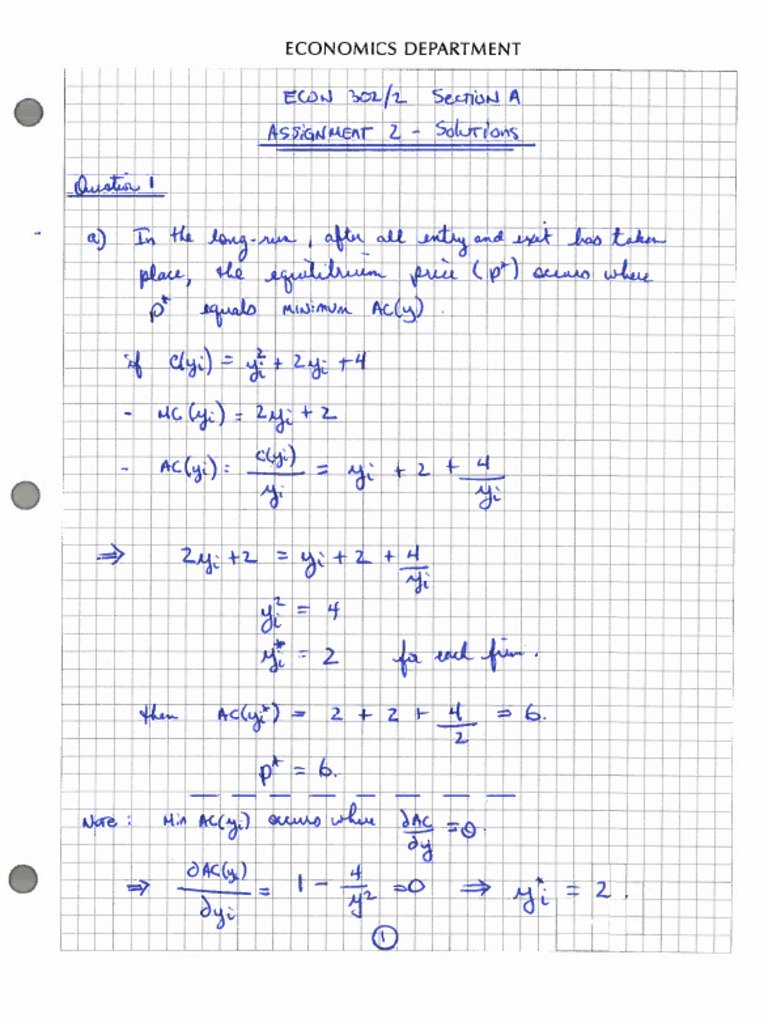 ECONOMICS DEPARTMENT
ECON 302/2 SECTION A
ASSIGNMENT 2 - SOLUTIONS
Question 1
a) In the long-run, after all entry and exit has taken
place, the equilibrium price (p*) occurs where
p* equals MINIMUM AC(y).
if C(yi) = yi² + 2yi + 4
- MC(yi) = 2yi + 2
- AC(yi): C(yi)/yi = yi + 2 + 4/yi
⇒ 2yi + 2 = yi + 2 + 4/yi
yi² = 4
yi* = 2 for each firm.
then AC(yi*) = 2 + 2 + 4/2 = 6.
p* = 6.
NOTE: Min AC(yi) occurs where ∂AC/∂y = 0.
⇒ ∂AC(yi)/∂yi = 1 - 4/y² = 0 ⇒ yi* = 2.
1